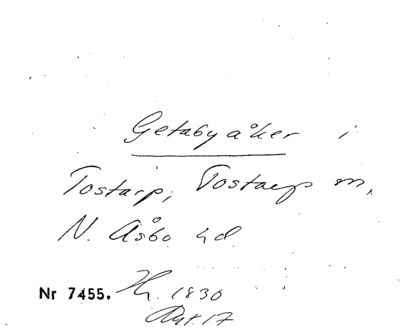 Getabyåker i
Tostarp, Tostarp m,
N. Åsbo hd
Nr 7455. 1830
17